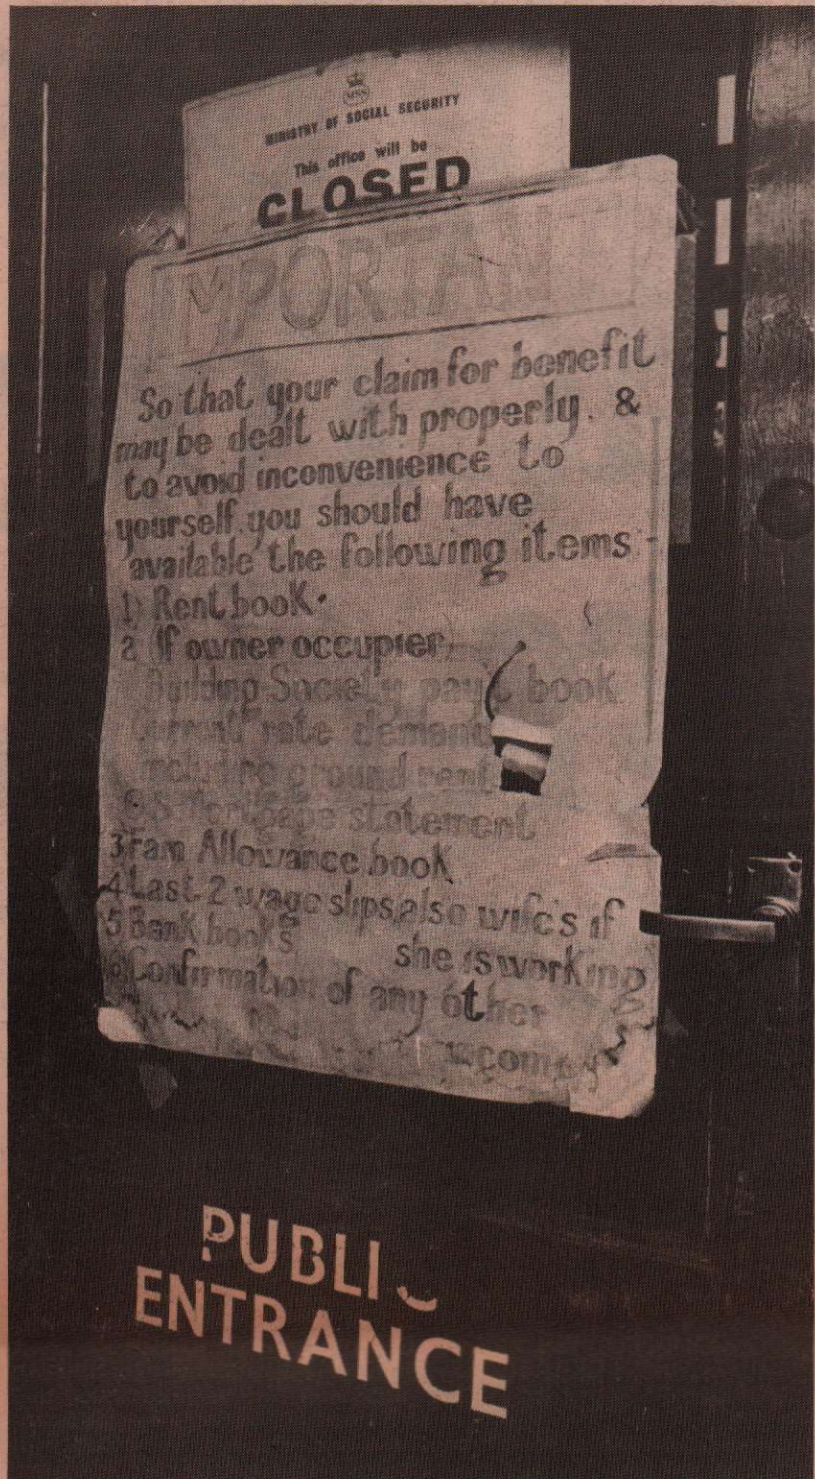 MSS
MINISTRY OF SOCIAL SECURITY
This office will be
CLOSED
IMPORTANT
So that your claim for benefit
may be dealt with properly. &
to avoid inconvenience to
yourself, you should have
available the following items:-
1) Rent book.
2 (If owner occupier)
Building Society pay't book
Current rate demand
including ground rent
Mortgage statement
3 Fam Allowance book
4 Last 2 wage slips, also wife's if
she is working
5 Bank books
6 Confirmation of any other
income
PUBLIC
ENTRANCE